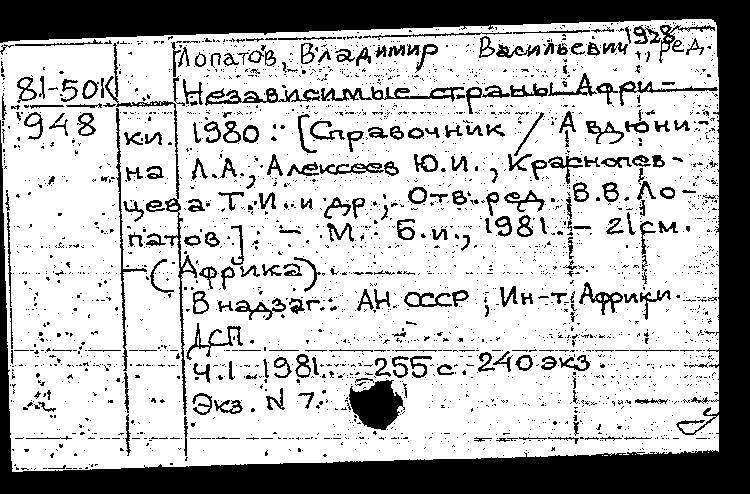 1928
Лопатов, Владимир Васильевич, ред.
81-50К Независимые страны Афри-
948 ки. 1980: [Справочник / Авдюни-
на Л.А., Алексеев Ю.И., Краснопев-
цева Т.И. и др.; Отв. ред. В.В. Ло-
патов]. - М.: Б.и., 1981. - 21см.
- (Африка).
В надзаг.: АН СССР, Ин-т Африки.
ДСП.
Ч.1. 1981. 255 с. 240 экз.
Экз. N 7.